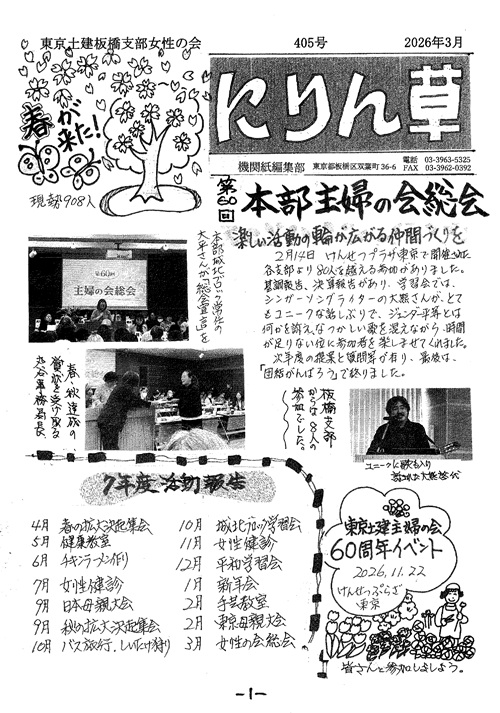 東京土建板橋支部女性の会 405号 2026年3月
春が来た!
現勢908人
にりん草
機関紙編集部 東京都板橋区双葉町36-6 電話 03-3963-5325
FAX 03-3962-0392
第60回
本部主婦の会総会
楽しい活動の輪が広がる仲間づくりを
2月14日 けんせつプラザ東京で開催され
各支部より80人を超える参加がありました。
基調報告、決算報告があり、学習会では、
シンガーソングライターの大熊さんが、とて
もユニークな話しぶりで、ジェンダー平等とは
何かを訴え、なつかしい歌を混えながら、時間
が足りない位に参加者を楽しませてくれました。
次年度の提案と質問等が有り、最後は、
「団結がんばろう」で終りました。
本部城北ブロック常任の
大平さんが「総会宣言」を
第60回
主婦の会総会
春・秋達成の
賞状を受け取る
事務局長
板橋支部
からは8人の
参加でした。
ユニークに歌も入り
7年度活動報告
4月 春の拡大決起集会
5月 健康教室
6月 チキンラーメン作り
7月 女性健診
9月 日本母親大会
9月 秋の拡大決起集会
10月 バス旅行、しいたけ狩り
10月 城北ブロック学習会
11月 女性健診
12月 平和学習会
1月 新年会
2月 手芸教室
2月 東京母親大会
3月 女性の会総会
東京土建主婦の会
60周年イベント
2026.11.22
けんせつぷらざ
東京
皆さんと参加しましょう。
-1-